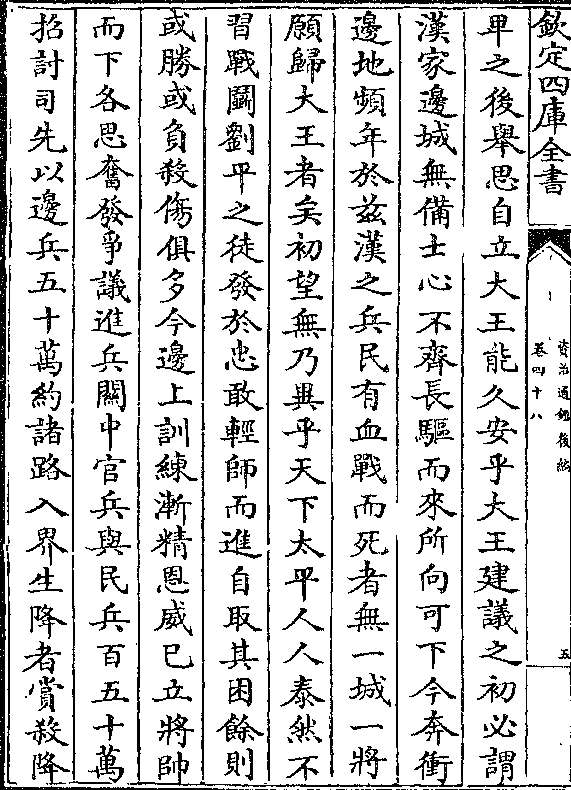 欽定四庫全書
資治通鑑後編
卷四十八
五
卑之後舉思自立大王能久安乎大王建議之初必謂
漢家邊城無備士心不齊長驅而來所向可下今奔衝
邊地頻年於茲漢之兵民有血戰而死者無一城一將
願歸大王者矣初望無乃異乎天下太平人人泰然不
習戰鬬劉平之徒發於忠敢輕師而進自取其困餘則
或勝或負殺傷俱多今邊上訓練漸精恩威已立將帥
而下各思奮發爭議進兵關中官兵與民兵百五十萬
招討司先以邊兵五十萬約諸路入界生降者賞殺降